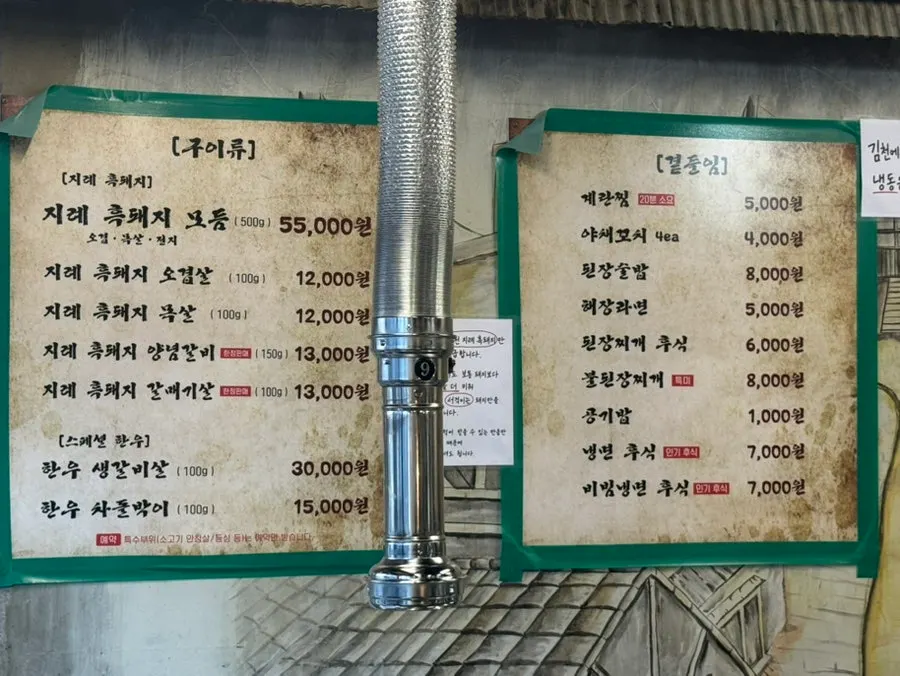 [구이류]
[지례 흑돼지]
지례 흑돼지 모듬 (500g) 55,000원
오겹·목살·전지
지례 흑돼지 오겹살 (100g) 12,000원
지례 흑돼지 목살 (100g) 12,000원
지례 흑돼지 양념갈비 한정판매 (150g) 13,000원
지례 흑돼지 갈매기살 한정판매 (100g) 13,000원
[스페셜 한우]
한우 생갈비살 (100g) 30,000원
한우 차돌박이 (100g) 15,000원
예약 특수부위(소고기 안창살/등심 등)는 예약만 받습니다.
9
지례 흑돼지만
합니다.
보통 돼지보다
더 비쥐
돼지만을
니다.
있는 만큼만
때문에
도 됩니다.
[곁들임]
계란찜 20분 소요 5,000원
야채꼬치 4ea 4,000원
된장술밥 8,000원
해장라면 5,000원
된장찌개 후식 6,000원
불된장찌개 특미 8,000원
공기밥 1,000원
냉면 후식 인기 후식 7,000원
비빔냉면 후식 인기 후식 7,000원
김천에
냉동